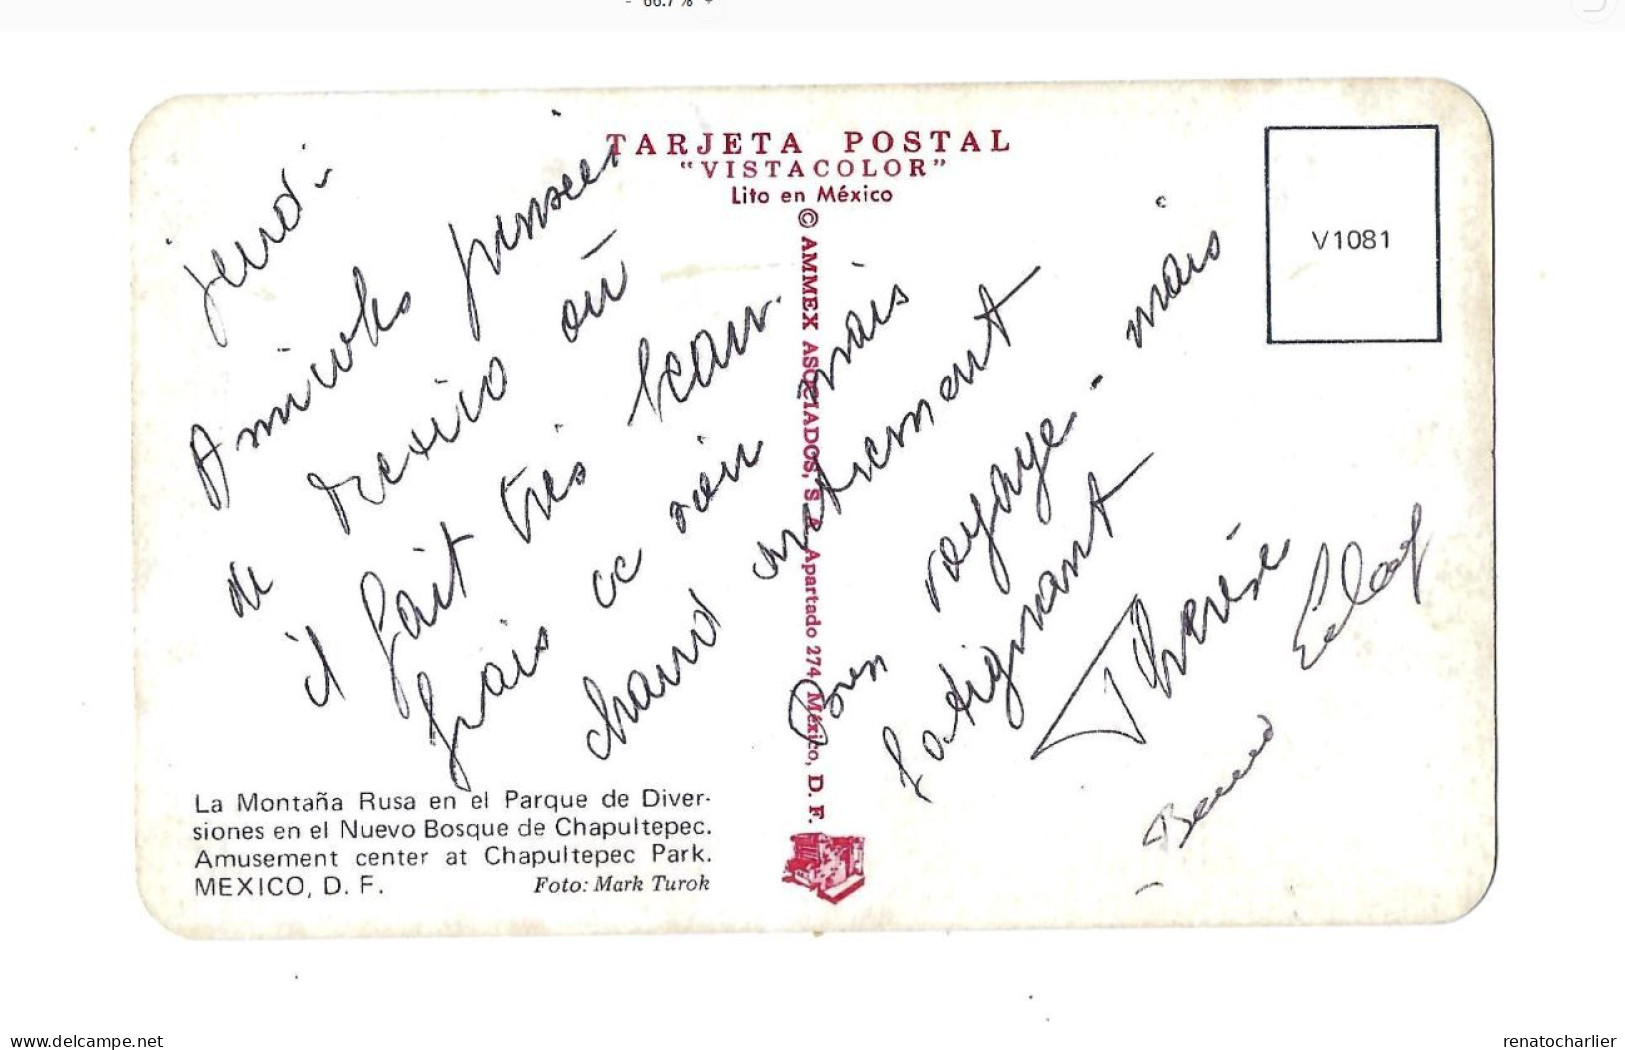 - 66.7 % +
TARJETA POSTAL
"VISTACOLOR"
Lito en México
© AMMEX ASOCIADOS, S. A. Apartado 274, México, D. F.
V1081
jeudi
Amicales pensées
de Mexico où
il fait très beau.
frais ce soir mais
chaud autrement
Bon voyage - mais
fatignant
Thérèse
La Montaña Rusa en el Parque de Diver-
siones en el Nuevo Bosque de Chapultepec.
Amusement center at Chapultepec Park.
MEXICO, D. F. Foto: Mark Turok
www.delcampe.net
renatocharlier